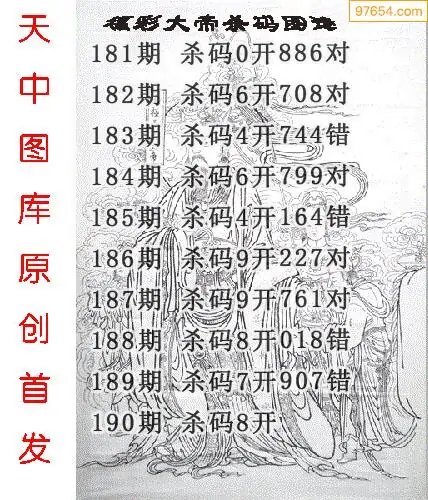 97654.com
福彩大帝杀码图谜
181期 杀码0开886对
182期 杀码6开708对
183期 杀码4开744错
184期 杀码6开799对
185期 杀码4开164错
186期 杀码9开227对
187期 杀码9开761对
188期 杀码8开018错
189期 杀码7开907错
190期 杀码8开
天中图库原创首发